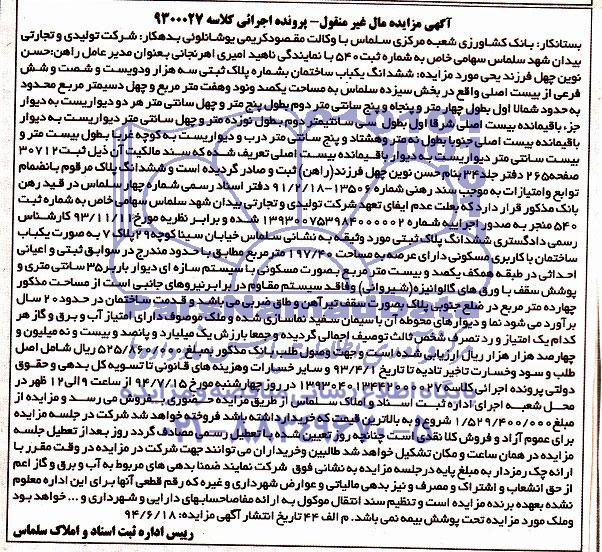 آگهی مزایده مال غیر منقول - پرونده اجرائی کلاسه ۹۳۰۰۰۲۷
بستانکار: بانک کشاورزی شعبه مرکزی سلماس با وکالت مقصودکریمی یوشانلوئی بدهکار: شرکت تولیدی و تجارتی
بیدان شهد سلماس سهامی خاص به شماره ثبت ۵۴۰ با نمایندگی ناهید امیری اهرنجانی بعنوان مدیر عامل راهن: حسن
نوین چهل فرزند یحی مورد مزایده: ششدانگ یکباب ساختمان بشماره پلاک ثبتی سه هزار ودویست و شصت و شش
فرعی از بیست اصلی واقع در بخش سیزده سلماس به مساحت یکصد ونود وهفت متر مربع و چهل دسیمتر مربع محدود
به حدود شمالا اول بطول چهار متر و پنجاه و پنج سانتی متر دوم بطول پنج متر و چهل سانتی متر هر دو دیواریست به دیوار
جزء باقیمانده بیست اصلی شرقا اول بطول سی سانتیمتر دوم بطول نوزده متر و چهل سانتی متر دیواریست به دیوار
باقیمانده بیست اصلی جنوبا بطول نه متر وهشتاد و پنج سانتی متر درب و دیواریست به کوچه غربا بطول بیست متر و
بیست سانتی متر دیواریست به دیوار باقیمانده بیست اصلی تعریف شده که سند مالکیت آن ذیل ثبت ۳۰۷۱۲
صفحه ۲۶۵ دفتر جلد ۳۴ بنام حسن نوین چهل فرزند(راهن) ثبت و صادر گردیده است و ششدانگ پلاک مرقوم بانضمام
توابع وامتیازات به موجب سند رهنی شماره ۱۳۵۰۶-۹۱/۲/۱۸ دفتر اسناد رسمی شماره چهار سلماس در قید رهن
بانک مذکور قرار دارد که بعلت عدم ایفای تعهد شرکت تولیدی و تجارتی بیدان شهد سلماس سهامی خاص به شماره ثبت
۵۴۰ منجر به صدور اجرائیه شماره ۱۳۹۳۰۰۷۵۳۹۸۴۰۰۰۰۰۲ شده و برابر نظریه مورخ ۹۳/۱۱/۱۱ کارشناس
رسمی دادگستری ششدانگ پلاک ثبتی مورد وثیقه به نشانی سلماس خیابان سینا کوچه ۲۹ پلاک ۷ به صورت یکباب
ساختمان با کاربری مسکونی دارای عرصه به مساحت ۱۹۷/۴۰ مترمربع مطابق با حدود مندرج در سوابق ثبتی و اعیانی
احداثی در طبقه همکف یکصد و بیست متر مربع بصورت مسکونی با سیستم سازه ای دیوار باربر ۳۵ سانتی متری و
پوشش سقف با ورق های گالوانیزه(شیروانی) وفاقد سیستم مقاوم در برابر نیروهای جانبی است از مساحت مذکور
چهارده متر مربع در ضلع جنوبی پلاک بصورت سقف تیر آهن و طاق ضربی می باشد و قدمت ساختمان در حدود ۲۰ سال
برآورد می شود نما و دیوارهای محوطه آن باسیمان سفید نماسازی شده و ملک موصوف دارای امتیاز آب و برق و گاز هر
کدام یک امتیاز و رد تصرف شخص ثالث توصیف اجمالی گردیده و جمعا بارزش یک میلیارد و پانصد و بیست و نه میلیون و
چهارصد هزار هزار ریال ارزیابی شده است و جهت وصول طلب بانک مذکور بمبلغ ۵۲۵/۸۶۰/۰۰۰ ریال شامل اصل
طلب و سود وخسارت تاخیر تادیه تا تاریخ ۹۳/۴/۱ و سایر خسارات وهزینه های قانونی تا تسویه کل بدهی و حقوق
دولتی پرونده اجرائی کلاسه ۱۳۹۳۰۴۰۱۳۴۴۲۰۰۰۰۲۷ در روز چهارشنبه مورخ ۹۴/۷/۱۵ از ساعت ۹ الی ۱۲ ظهر در
محل شعبه اجرای اداره ثبت اسناد و املاک سلماس از طریق مزایده حضوری بفروش می رسد و مزایده از
مبلغ ۱/۵۲۹/۴۰۰/۰۰۰ شروع و به بالاترین قیمت که خریدار داشته باشد فروخته خواهد شد شرکت در جلسه مزایده
برای عموم آزاد و فروش کلا نقدی است چنانچه روز تعیین شده با تعطیل رسمی مصادف گردد روز بعد از تعطیل جلسه
مزایده در همان ساعت و مکان تشکیل خواهد شد طالبین وخریداران می توانند جهت شرکت در مزایده در وقت مقرر با
ارائه چک رمزدار به مبلغ پایه در جلسه مزایده به نشانی فوق شرکت نمایند ضمنا بدهی های مربوط به آب و برق و گاز اعم
از حق انشعاب و اشتراک و مصرف و نیز بدهی مالیاتی و عوارض شهرداری و غیره که رقم قطعی آنها برای این اداره معلوم
نشده بعهده برنده مزایده است و تنظیم سند انتقال موکول به ارائه مفاصاحسابهای دارایی و شهرداری و ... خواهد بود
وملک مورد مزایده تحت پوشش بیمه نمی باشد. م الف ۴۴ تاریخ انتشار آگهی مزایده: ۹۴/۶/۱۸
رییس اداره ثبت اسناد و املاک سلماس